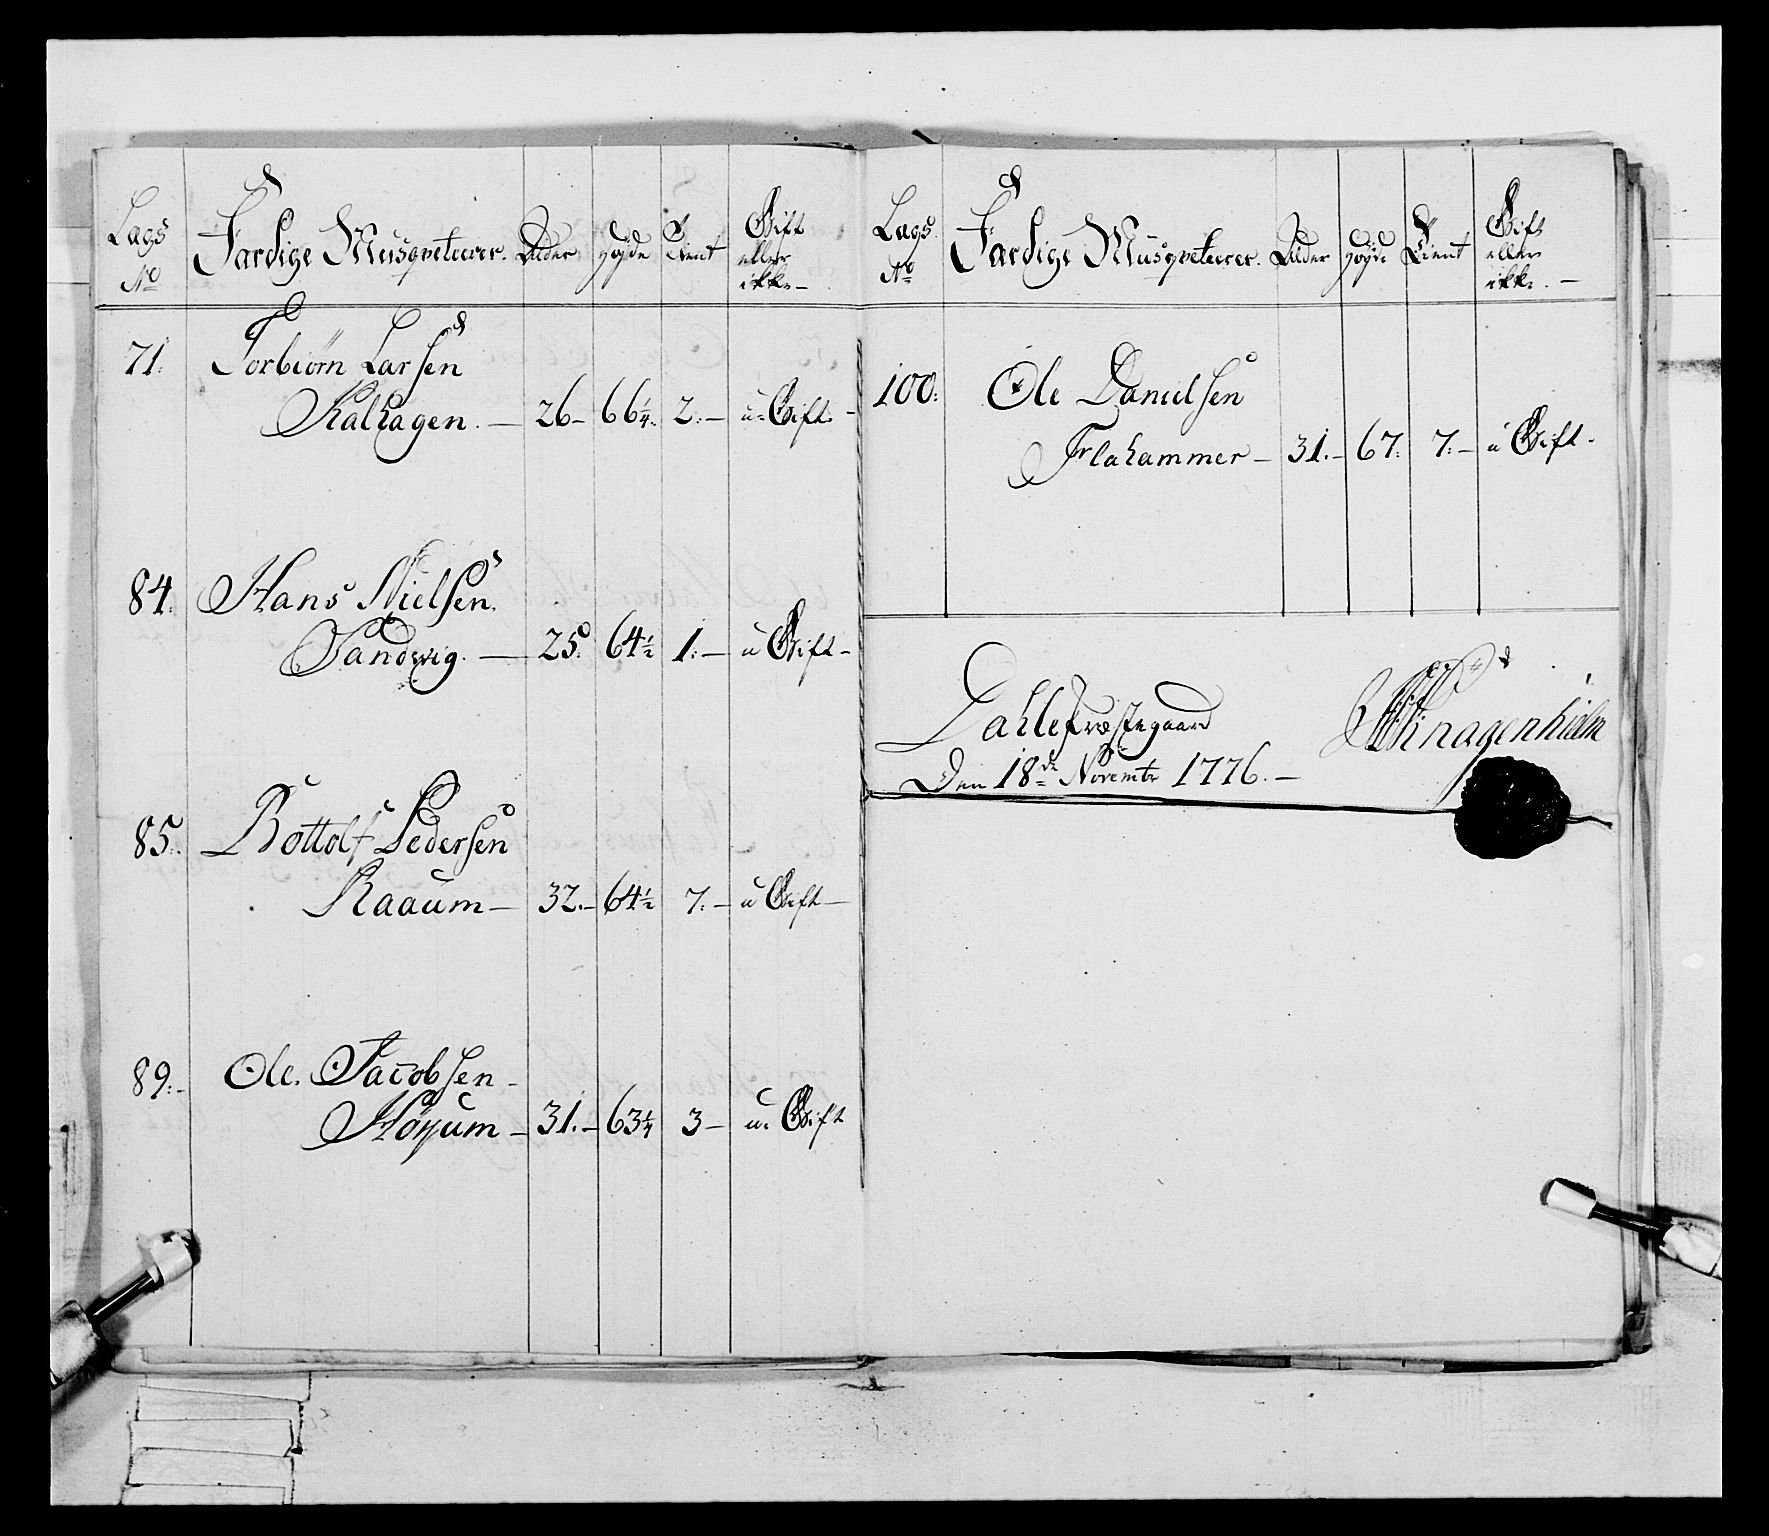 Lags No | Færdige Musqveteerer. | Alder | Høyde | Tient | Gift eller ikke
71. Torbiørn Larsen
Kalhagen. — 26 — 66 1/4. 2. — u-Gift. -
84. Hans Nielsen.
Sandvig. — 25. 64 1/2 1. — u Gift -
85. Bottolf Pedersen
Raaum — 32. — 64 1/2 7. — u Gift —
89. Ole. Jacobsen -
Höyum — 31. — 63 1/4 3 — u. Gift
Lags No | Færdige Musqveteerer. | Alder | Høyde | Tient | Gift eller ikke. —
100. Ole Danielsen
Flahammer — 31. — 67. 7. — u Gift -
Dahle Præstegaard
Den 18de Novembr 1776. —
Knagenhielm